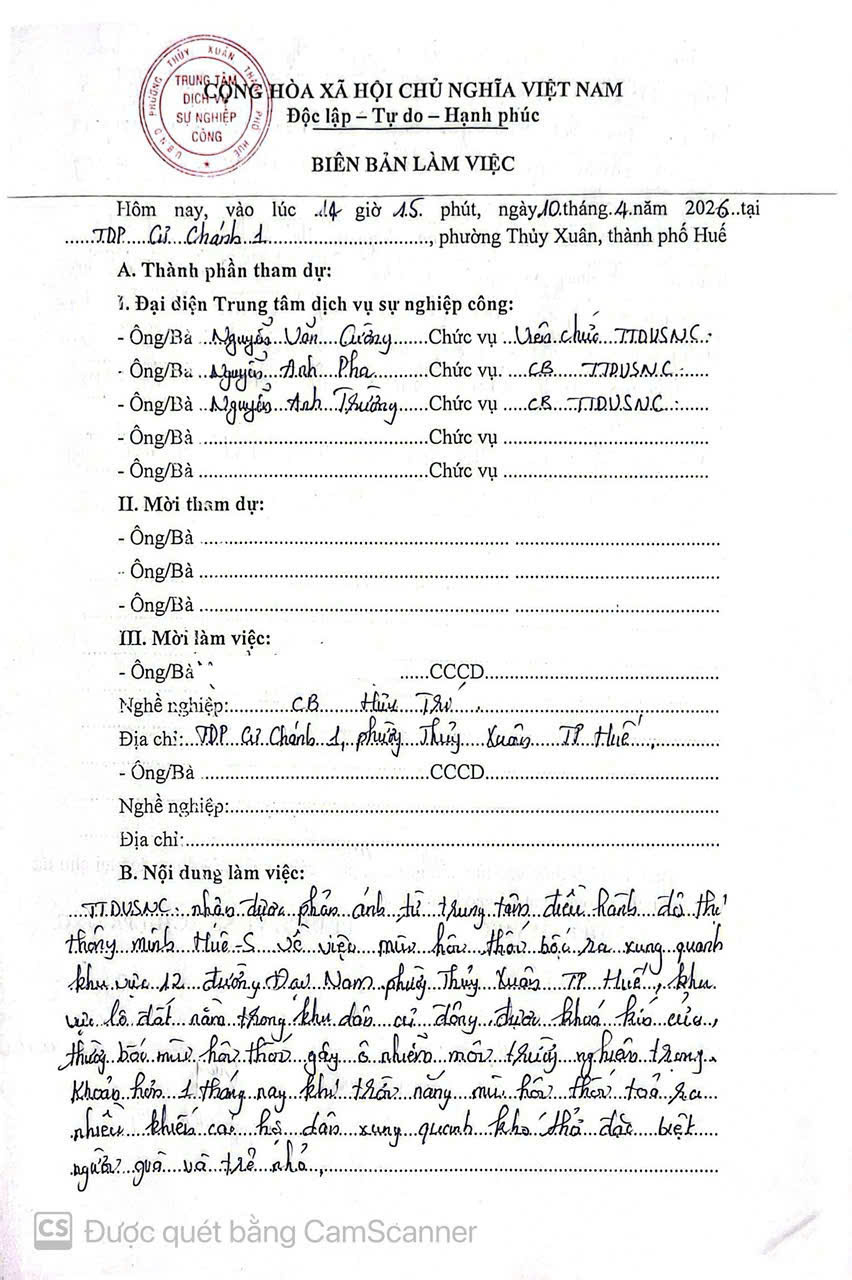 UBND PHƯỜNG THỦY XUÂN THÀNH PHỐ HUẾ
TRUNG TÂM
DỊCH VỤ
SỰ NGHIỆP
CÔNG
CỘNG HÒA XÃ HỘI CHỦ NGHĨA VIỆT NAM
Độc lập – Tự do – Hạnh phúc
BIÊN BẢN LÀM VIỆC
Hôm nay, vào lúc 14 giờ 15 phút, ngày 10 tháng 4 năm 2026 tại
TDP Cư Chánh 1, phường Thủy Xuân, thành phố Huế
A. Thành phần tham dự:
I. Đại diện Trung tâm dịch vụ sự nghiệp công:
- Ông/Bà Nguyễn Văn Cường Chức vụ Viên chức TTDVSNC
- Ông/Bà Nguyễn Anh Pha Chức vụ CB TTDVSNC
- Ông/Bà Nguyễn Anh Thường Chức vụ CB TTDVSNC
- Ông/Bà Chức vụ
- Ông/Bà Chức vụ
II. Mời tham dự:
- Ông/Bà
- Ông/Bà
- Ông/Bà
III. Mời làm việc:
- Ông/Bà CCCD
Nghề nghiệp: CB Hưu Trí
Địa chỉ: TDP Cư Chánh 1, phường Thủy Xuân TP Huế
- Ông/Bà CCCD
Nghề nghiệp:
Địa chỉ:
B. Nội dung làm việc:
TTDVSNC nhận được phản ánh từ trung tâm điều hành đô thị
thông minh Huế-S về việc mùi hôi thối bốc ra xung quanh
khu vực 12 đường Đại Nam phường Thủy Xuân TP Huế, khu
vực lô đất nằm trong khu dân cư đông, được khoá kín cửa,
thường bốc mùi hôi thối gây ô nhiễm môi trường nghiêm trọng.
Khoảng hơn 1 tháng nay khi trời nắng mùi hôi thối toả ra
nhiều khiến các hộ dân xung quanh khó thở đặc biệt
người già và trẻ nhỏ,
CS Được quét bằng CamScanner